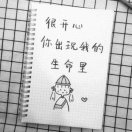 很开心
你出现我的
生命里